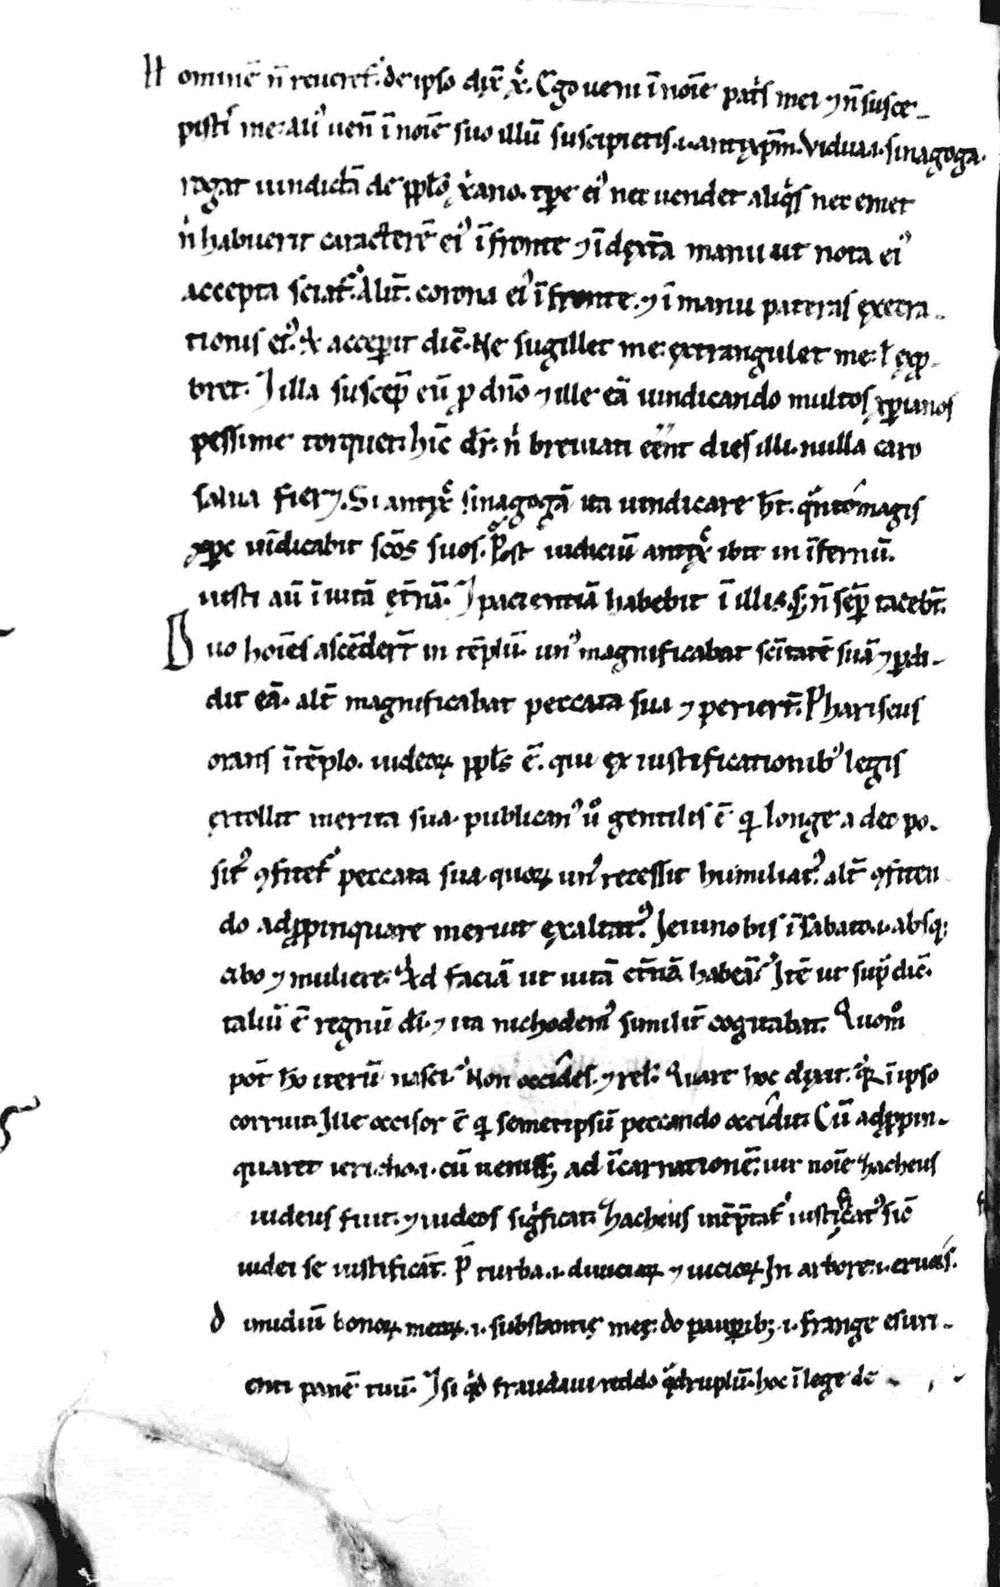 Hominē n̄ reueret᷑. de ipso dix̄ xp̄c. Ego ueni ī noīe patris mei ⁊ n̄ susce-
pistis me. aliꝰ ueñ ī noīe suo illū suscipietis .i. antixp̄m. Vidua .i. sinagoga.
rogat uindictā de pplō xp̄ano. tp̄r eiꝰ nec uendet aliquis nec emet
nͥ habuerit caracterē eiꝰ ī fronte ⁊ ī dextra manu ut nota eiꝰ
accepta sciat᷑. Alit̄. corona eiꝰ ī fronte. ⁊ ī manu pateras execra-
tionis eiꝰ. accep̄it dic̄. Ne sugillet me. extrangulet me. ł exp̄-
bret. ⁊ illa suscep̄ eū ꝓ dn̄o ⁊ ille eā uindicando multos xp̄ianos
pessime torquet. hic̄ dr̄. nͥ breuiati eēnt dies illi. nulla caro
salua fieret. Si antixp̄c sinagogā ita uindicare hēt. quāto magis
xp̄c uīdicabit scōs suos. Post iudiciū antixp̄c ibit in īfernū.
iusti aū ī uitā et̄nā. ⁊ pacientiā habebit ī illis. s; n̄ semp̄ tacebt̄.
Duo hoīes ascēdert̄ in tēplū. unꝰ magnificabat scītatē suā ⁊ ꝑdi-
dit eā. alt̄ magnificabat peccata sua ⁊ periert̄. Phariseus
orans ī tēplo. iudeoꝝ ppl̄s ē. qui ex iustificationibꝰ legis
extollit merita sua. publicanꝰ ũ gentilis ē qͥ longe a deo po-
sitꝰ ꝯfitet᷑ peccata sua. quoꝝ unꝰ recessit humiliatꝰ. alt̄ ꝯfiten
do adp̄pinquare meruit exaltatꝰ. Ieiuno bis ī sabato .i. absq;
cibo ⁊ muliere. Qͥd faciā ut uitā et̄nā habeā. Itē ut sup̄ dic̄.
taliū ē regnū dī. ⁊ ita nichodemꝰ similit̄ cogitabat. Quom̊
pot̄ ho iterū nasci. Non occides. ⁊ rel. Quare hoc dixit. qͥ ī ipso
corruit. Ille occisor ē qͥ semetipsū peccando occidit. Cū adp̄pin-
quaret iericho .i. cū uenisset ad īcarnationē. uir noīe zacheus
iudeus fuit. ⁊ iudeos significat. Zacheus int̄p̄tat᷑ iustificatꝰ sic̄
iudei se iustificāt. P̄ turba .i. diuiciaꝝ ⁊ uicioꝝ. In arbore .i. crucis.
dimidiū bonoꝝ meoꝝ .i. substantię meę. do paup̄ib; .i. frange esuri-
enti panē tuū. ⁊ si qͥd fraudaui reddo quadruplū. hoc ī lege de